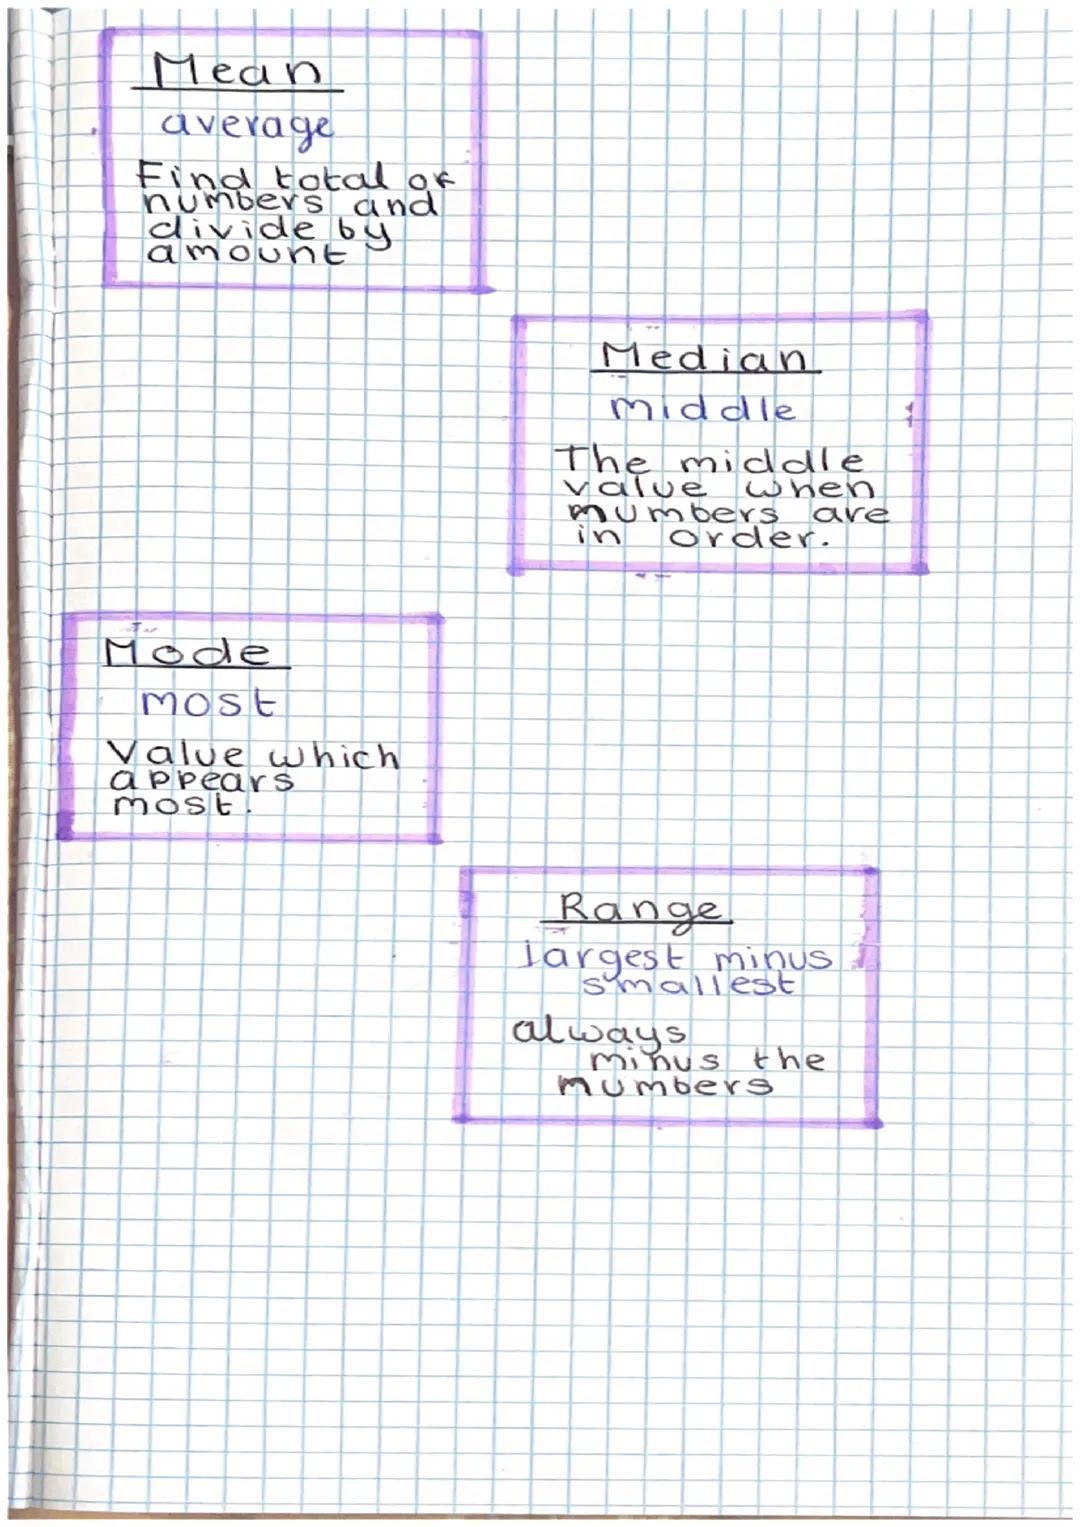 Mean
average
Find total of
numbers and
divide by
amount
Median
middle
The middle
value when
numbers are
in order.
Mode
most
Value which
appears
most.
Range
largest minus
smallest
always
minus the
numbers